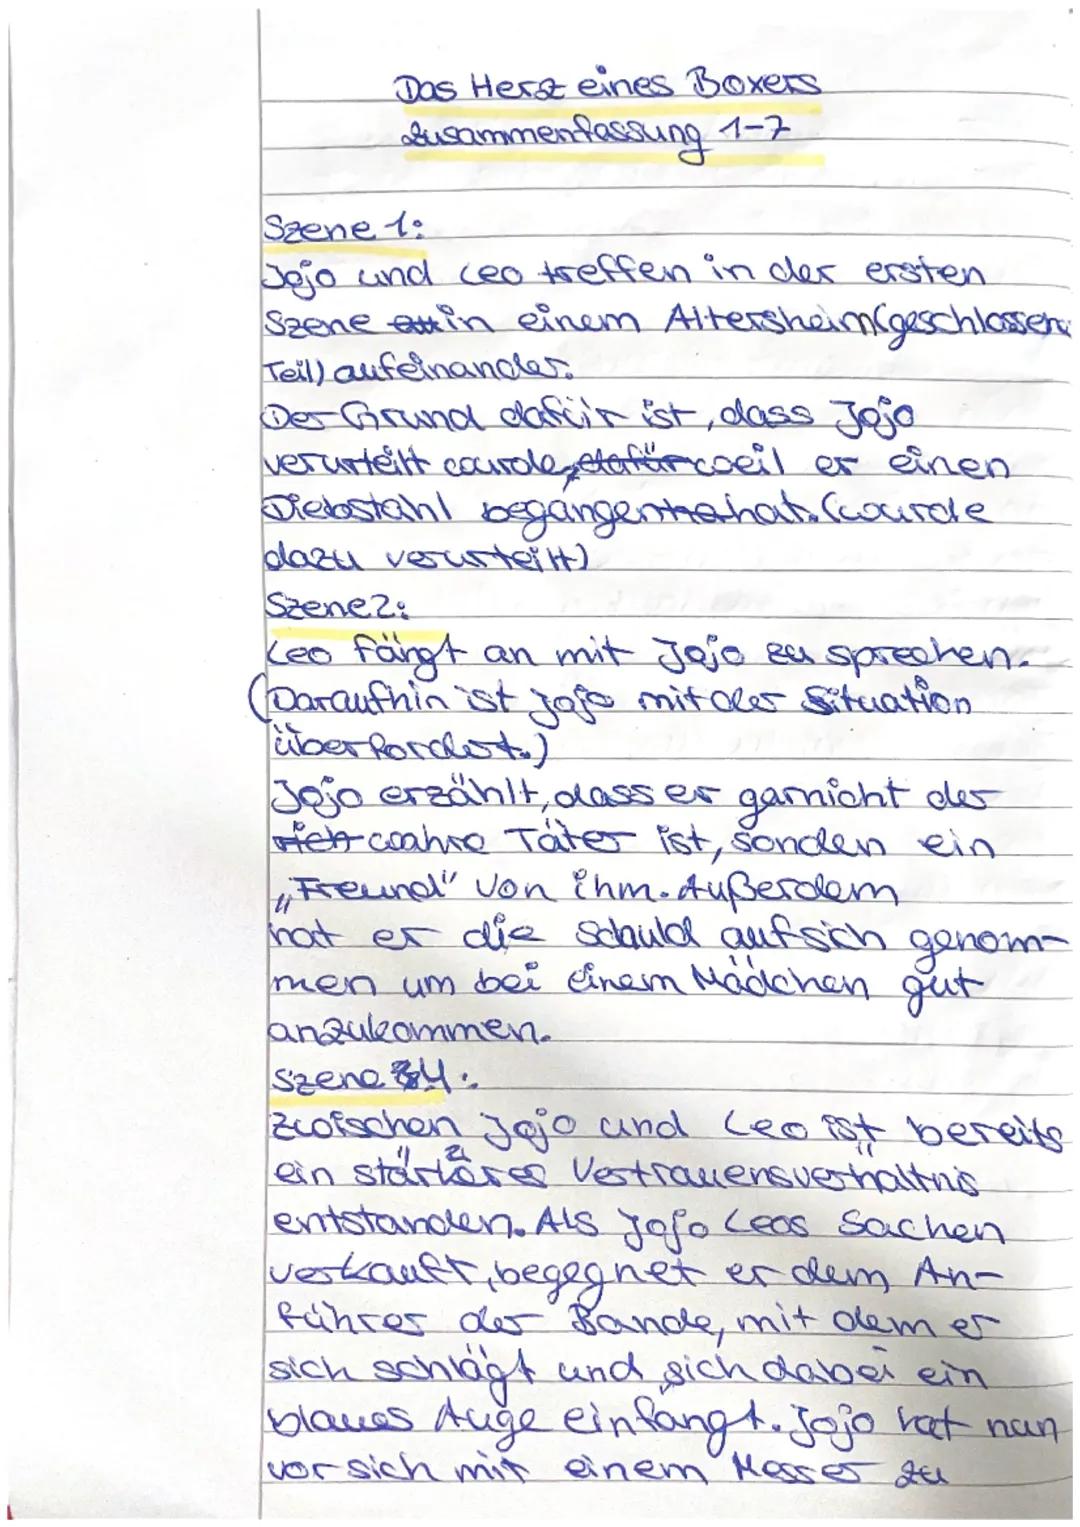 Das Herz eines Boxers
Zusammenfassung 1-7
Szene 1:
Jojo und Leo treffen in der ersten
Szene in einem Altersheim (geschlossener
Teil) aufeinander.
Der Grund dafür ist, dass Jojo
verurteilt wurde, dafür weil er einen
Diebstahl begangen hat. (wurde
dazu verurteilt)
Szene 2:
Leo fängt an mit Jojo zu sprechen.
(Daraufhin ist Jojo mit der Situation
überfordert.)
Jojo erzählt, dass er garnicht der
wahre Täter ist, sonden ein
„Freund" von ihm. Außerdem
hat er die Schuld auf sich genom-
men um bei einem Mädchen gut
anzukommen.
Szene 4:
Zwischen Jojo und Leo ist bereits
ein stärkeres Vertrauensverhältnis
entstanden. Als Jojo Leos Sachen
verkauft, begegnet er dem An-
führer der Bande, mit dem er
sich schlägt und sich dabei ein
blaues Auge einfängt. Jojo hat nun
vor sich mit einem Messer zu